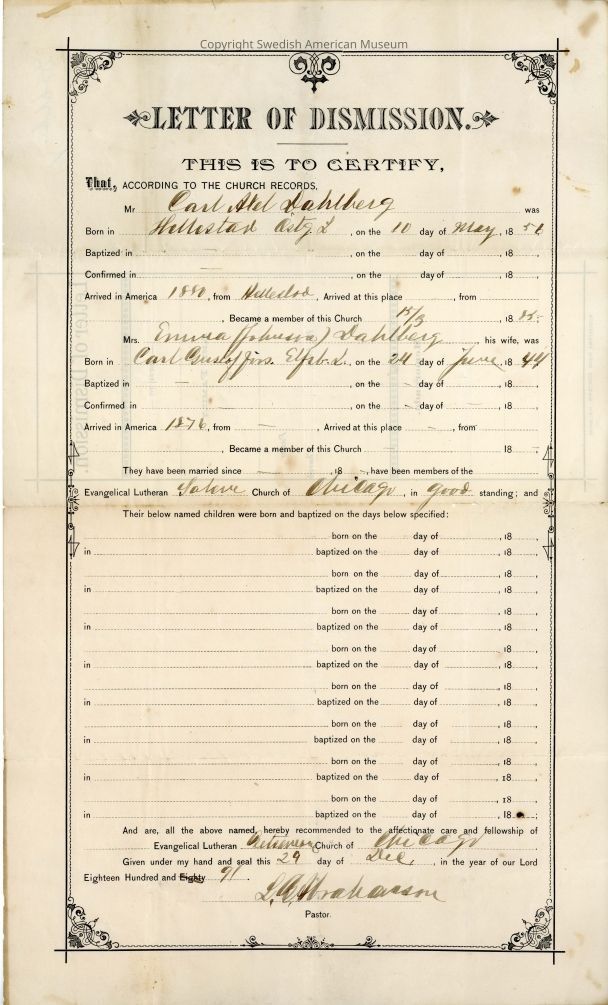 Copyright Swedish American Museum
LETTER OF DISMISSION.
THIS IS TO CERTIFY,
That, ACCORDING TO THE CHURCH RECORDS,
Mr Carl Axel Dahlberg was
Born in Östg L , on the 10 day of May, 18
Baptized in — , on the day of , 18 ,
Confirmed in — , on the day of , 18 ,
Arrived in America 1880, from , Arrived at this place , from
, Became a member of this Church 15/3 18 85
Mrs. Emma (Johnson) Dahlberg his wife, was
Born in Carl Gustaf förs. Elfsb. L. , on the 24 day of June, 18 44
Baptized in — , on the - day of - , 18 - ,
Confirmed in — , on the - day of - , 18 - ,
Arrived in America 1876, from — , Arrived at this place - , from -
, Became a member of this Church — 18 -
They have been married since — , 18 -, have been members of the
Evangelical Lutheran Church of Chicago, in good standing; and
Their below named children were born and baptized on the days below specified:
born on the day of , 18 ,
in baptized on the day of , 18 ,
born on the day of , 18 ,
in baptized on the day of , 18 ,
born on the day of , 18 ,
in baptized on the day of , 18 ,
born on the day of , 18 ,
in baptized on the day of , 18 ,
born on the day of , 18 ,
in baptized on the day of , 18 ,
born on the day of , 18 ,
in baptized on the day of , 18 ,
born on the day of , 18 ,
in baptized on the day of , 18 ,
born on the day of , 18 ,
in baptized on the day of , 18 ,
And are, all the above named, hereby recommended to the affectionate care and fellowship of
Evangelical Lutheran Church of Chicago
Given under my hand and seal this 29 day of Dec. , in the year of our Lord
Eighteen Hundred and Eighty 91.
L. G. Abrahamson
Pastor.